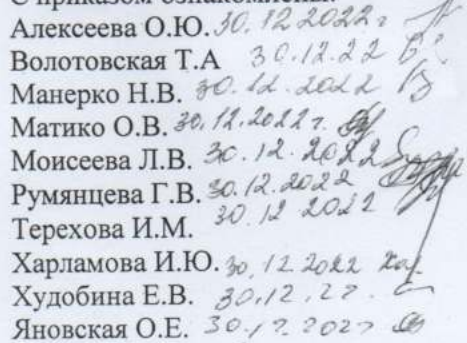 С приказом ознакомлены:
Алексеева О.Ю. 30.12.2022г
Волотовская Т.А 30.12.22
Манерко Н.В. 30.12.2022
Матико О.В. 30.12.2022г.
Моисеева Л.В. 30.12.2022
Румянцева Г.В. 30.12.2022
Терехова И.М. 30.12 2022
Харламова И.Ю. 30.12.2022
Худобина Е.В. 30.12.22.
Яновская О.Е. 30.12.2022